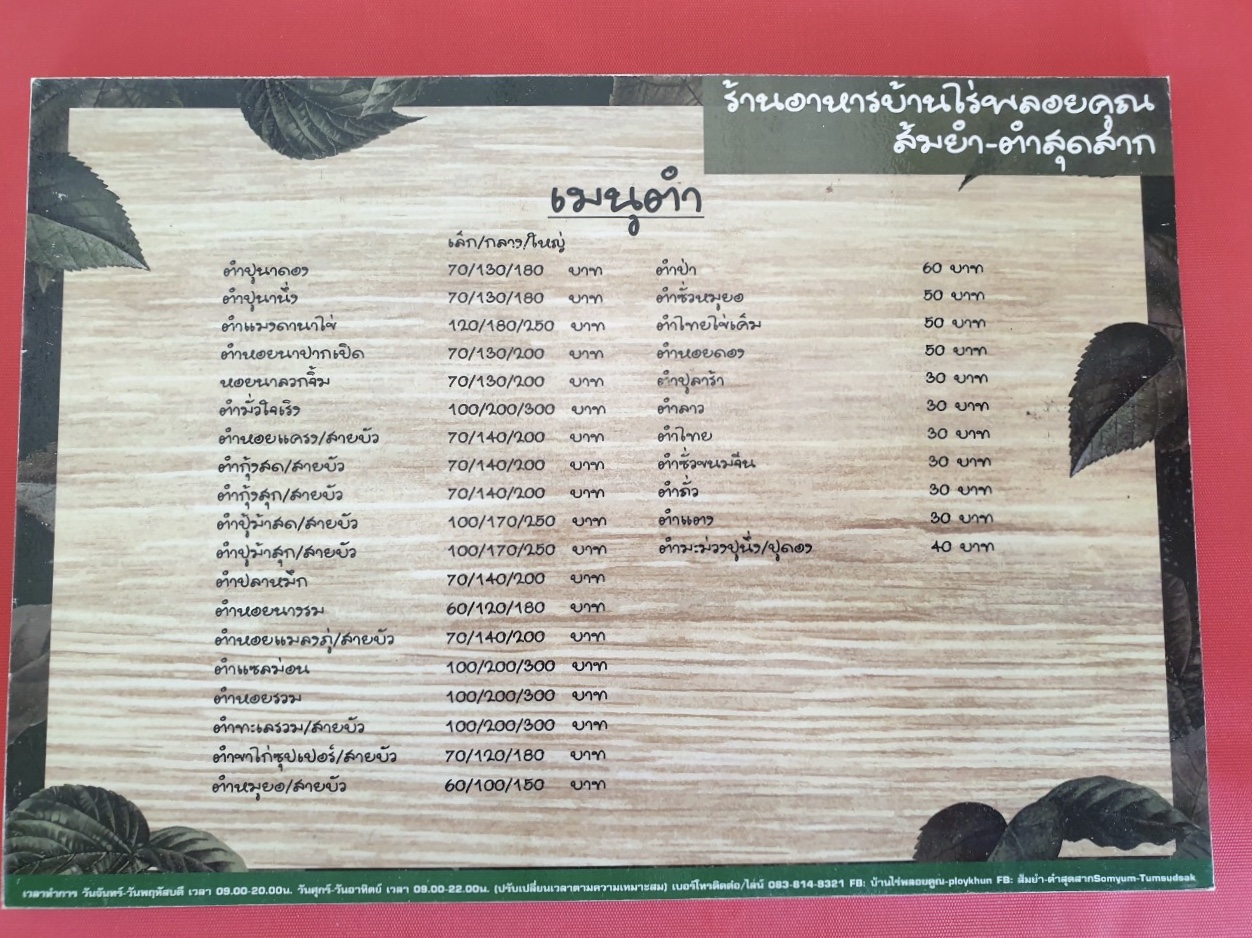 ร้านอาหารบ้านไร่พลอยคุณ
ส้มยำ-ตำสุดสาก
เมนูตำ
เล็ก/กลาง/ใหญ่
ตำปูนาดอง 70/130/180 บาท
ตำปูนานึ่ง 70/130/180 บาท
ตำแมงดานาไข่ 120/180/250 บาท
ตำหอยนาปากเปิด 70/130/200 บาท
หอยนาลวกจิ้ม 70/130/200 บาท
ตำมั่วใจเริง 100/200/300 บาท
ตำหอยแครง/สายบัว 70/140/200 บาท
ตำกุ้งสด/สายบัว 70/140/200 บาท
ตำกุ้งสุก/สายบัว 70/140/200 บาท
ตำปูม้าสด/สายบัว 100/170/250 บาท
ตำปูม้าสุก/สายบัว 100/170/250 บาท
ตำปลาหมึก 70/140/200 บาท
ตำหอยนางรม 60/120/180 บาท
ตำหอยแมลงภู่/สายบัว 70/140/200 บาท
ตำแซลม่อน 100/200/300 บาท
ตำหอยรวม 100/200/300 บาท
ตำทะเลรวม/สายบัว 100/200/300 บาท
ตำขาไก่ซุปเปอร์/สายบัว 70/120/180 บาท
ตำหมูยอ/สายบัว 60/100/150 บาท
ตำป่า 60 บาท
ตำซั่วหมูยอ 50 บาท
ตำไทยไข่เค็ม 50 บาท
ตำหอยดอง 50 บาท
ตำปูลาร้า 30 บาท
ตำลาว 30 บาท
ตำไทย 30 บาท
ตำซั่วขนมจีน 30 บาท
ตำถั่ว 30 บาท
ตำแตง 30 บาท
ตำมะม่วงปูนึ่ง/ปูดอง 40 บาท
เวลาทำการ วันจันทร์-วันพฤหัสบดี เวลา 09.00-20.00น. วันศุกร์-วันอาทิตย์ เวลา 09.00-22.00น. (ปรับเปลี่ยนเวลาตามความเหมาะสม) เบอร์โทรติดต่อ/ไลน์ 093-614-9321 FB: บ้านไร่พลอยคูณ-ploykhun FB: ส้มยำ-ตำสุดสากSomyum-Tumsudsak